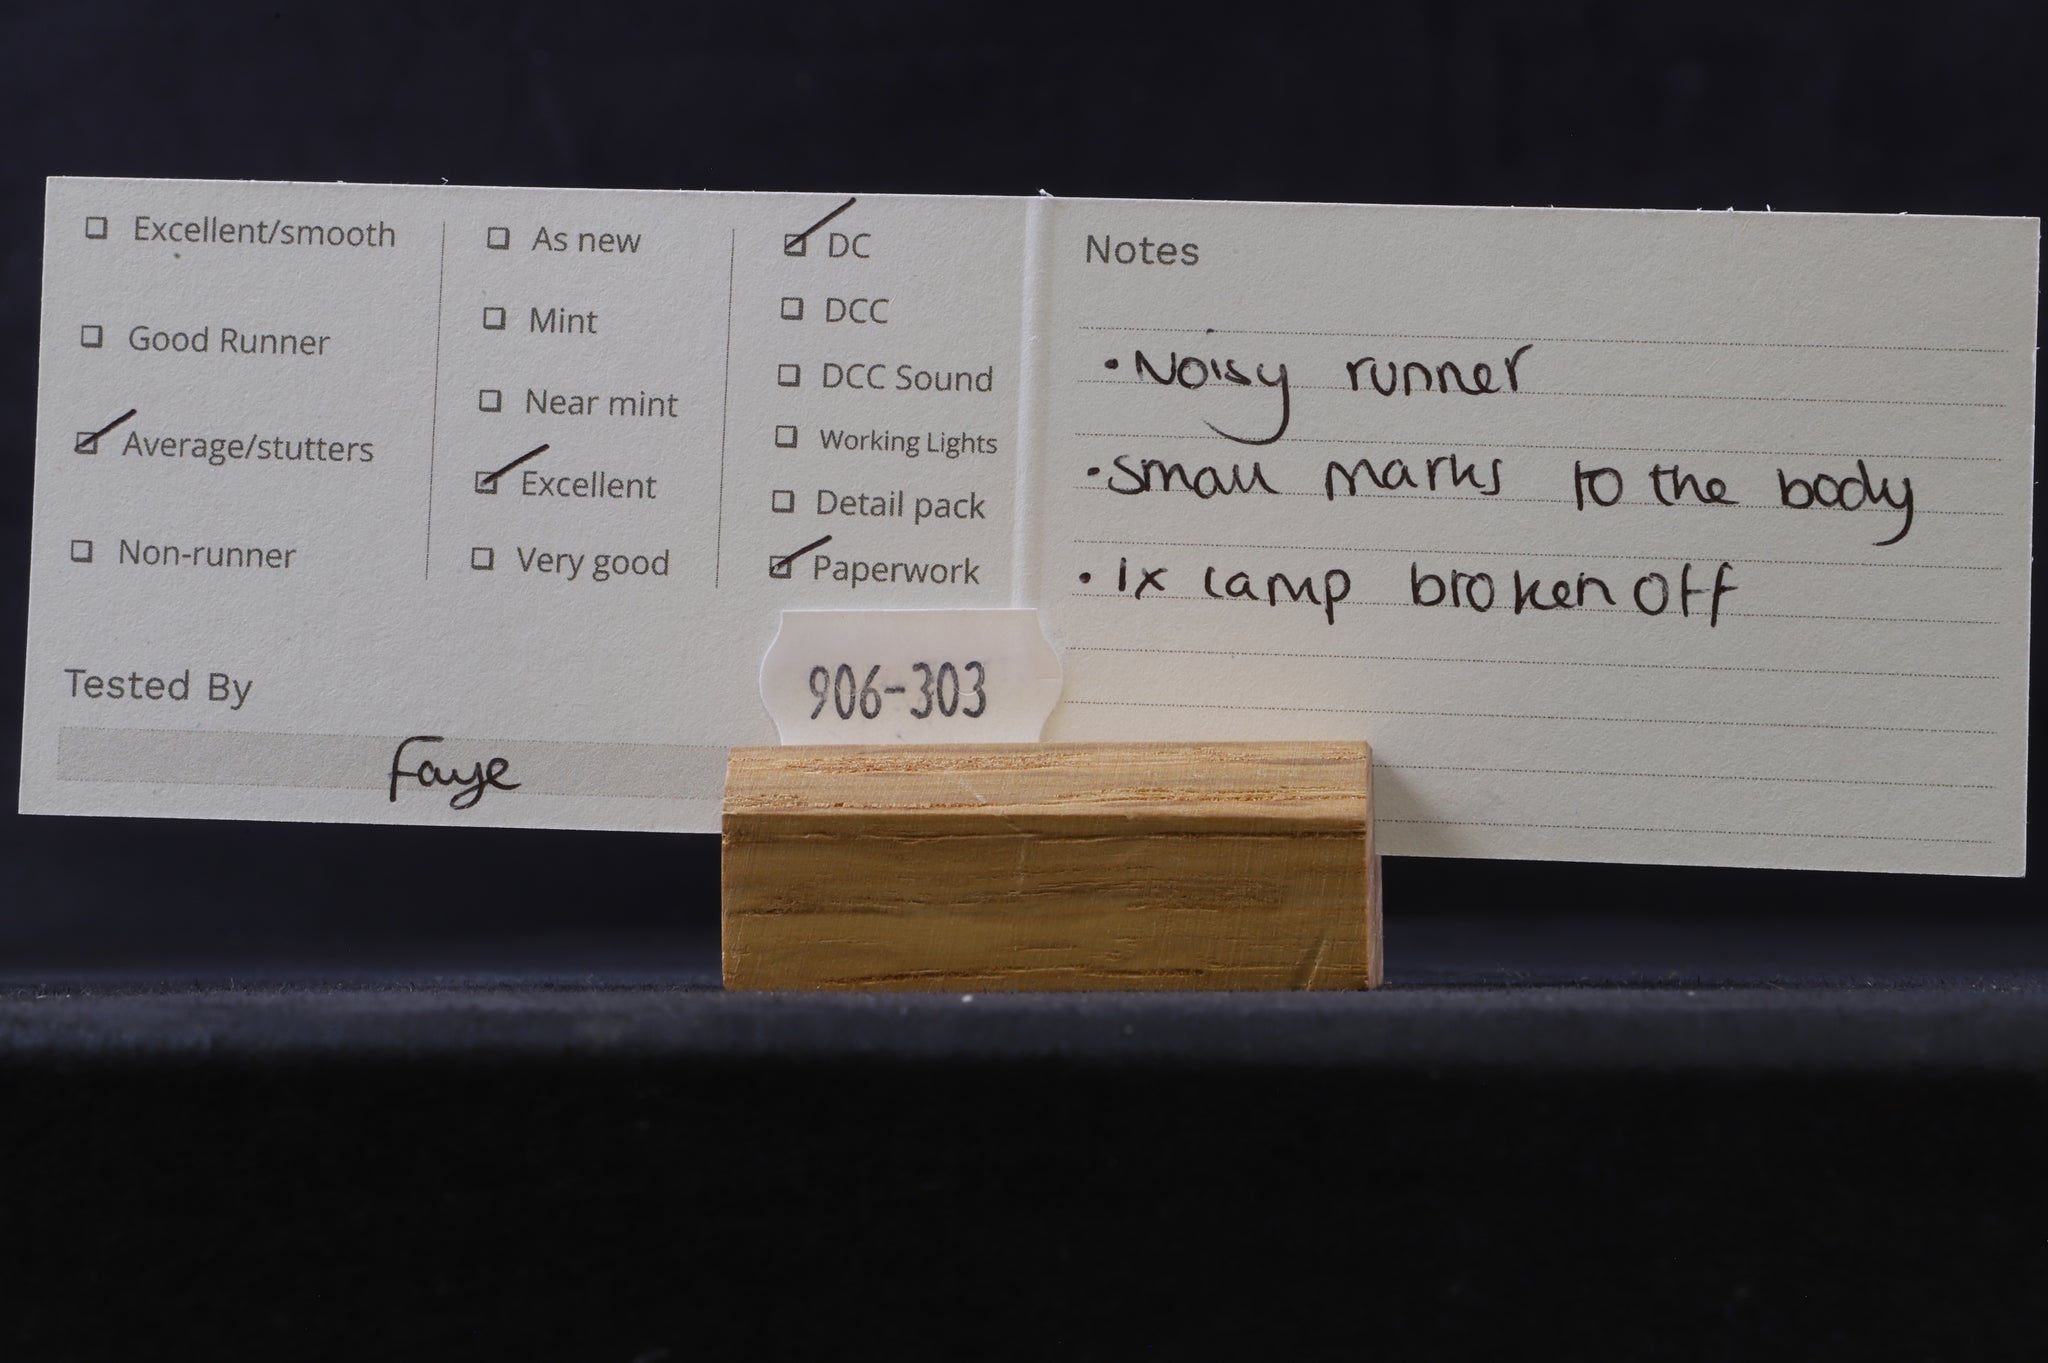 Excellent/smooth
Good Runner
Average/stutters
Non-runner
As new
Mint
Near mint
Excellent
Very good
DC
DCC
DCC Sound
Working Lights
Detail pack
Paperwork
Tested By
Faye
906-303
Notes
• Noisy runner
• Small marks to the body
• 1x lamp broken off